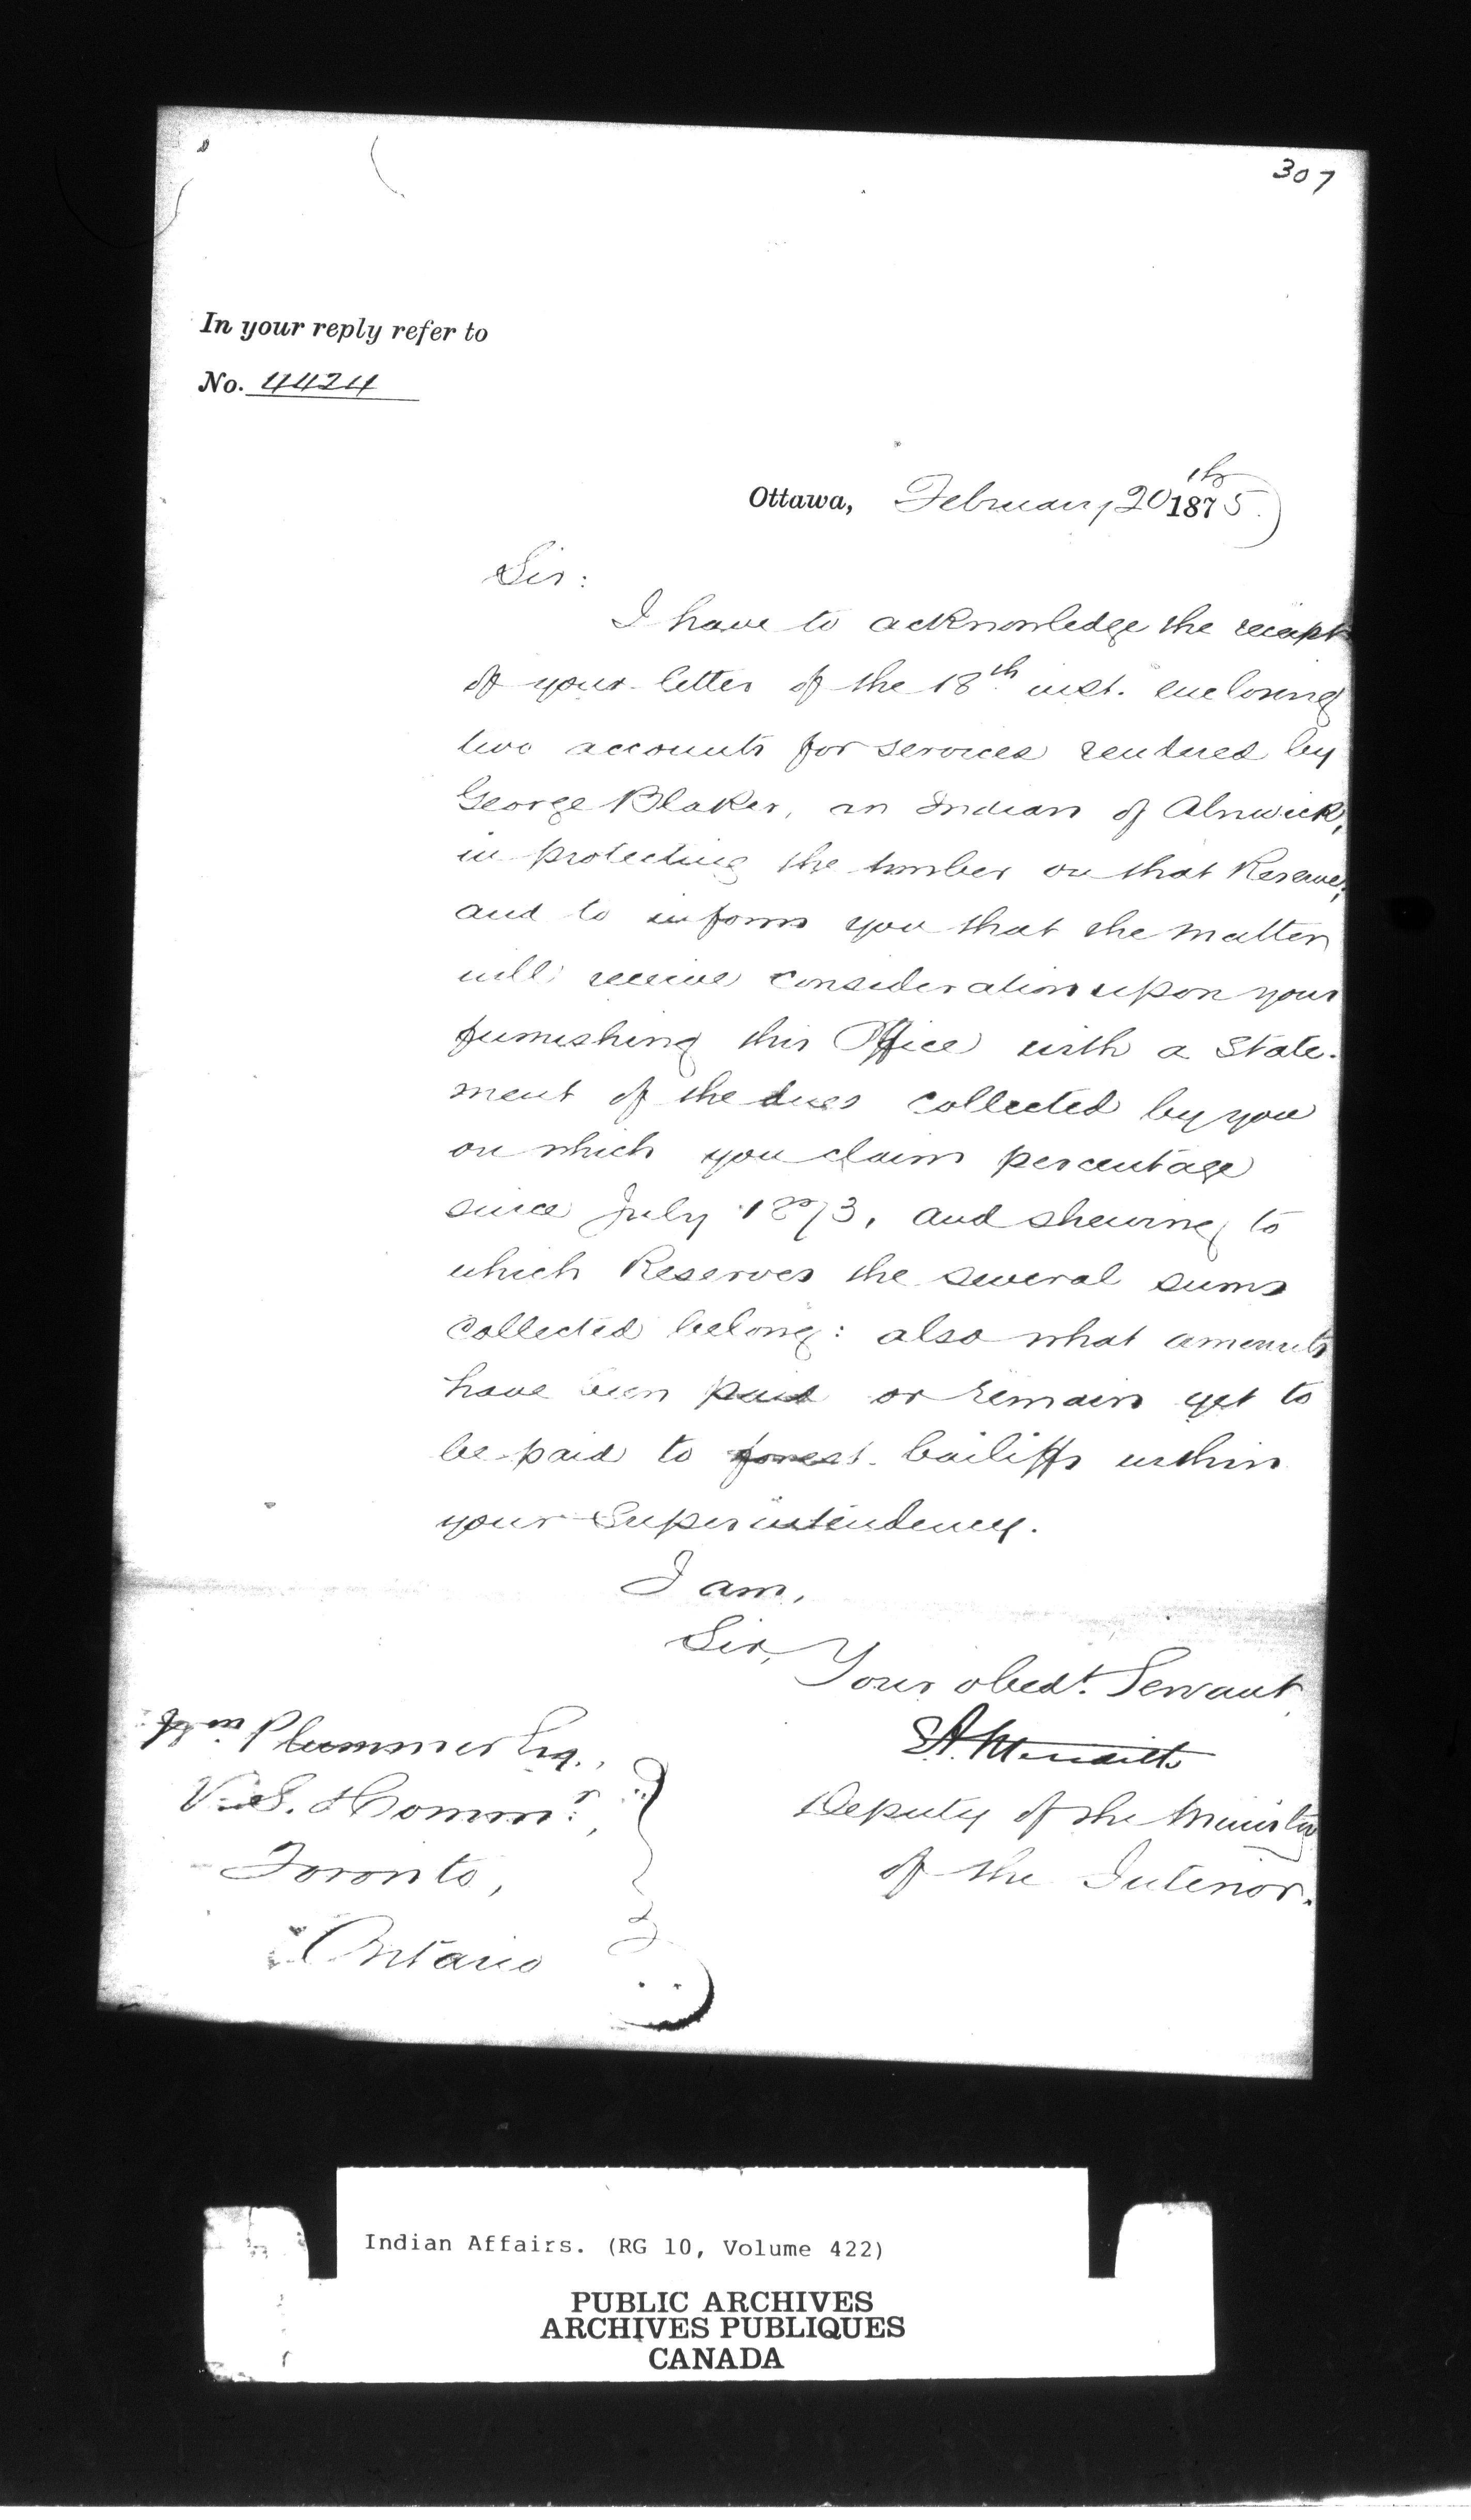 307
In your reply refer to
No. 4424
Ottawa, February 20th 1875.
Sir:
I have to acknowledge the receipt
of your letter of the 18th inst. enclosing
two accounts for services rendered by
George Blaker, an Indian of Alnwick,
in protecting the timber on that Reserve;
and to inform you that the matter
will receive consideration upon your
furnishing this Office with a State-
ment of the dues collected by you
on which you claim percentage
since July 1873, and shewing to
which Reserves the several sums
collected belong: also what amounts
have been paid or remain yet to
be paid to forest bailiffs within
your Superintendency.
I am,
Sir,
Your obedt. Servant,
E A. Meredith
Deputy of the Minister
of the Interior.
Wm. Plummer Esq.,
V. S. & Commr.,
Toronto,
Ontario
Indian Affairs. (RG 10, Volume 422)
PUBLIC ARCHIVES
ARCHIVES PUBLIQUES
CANADA